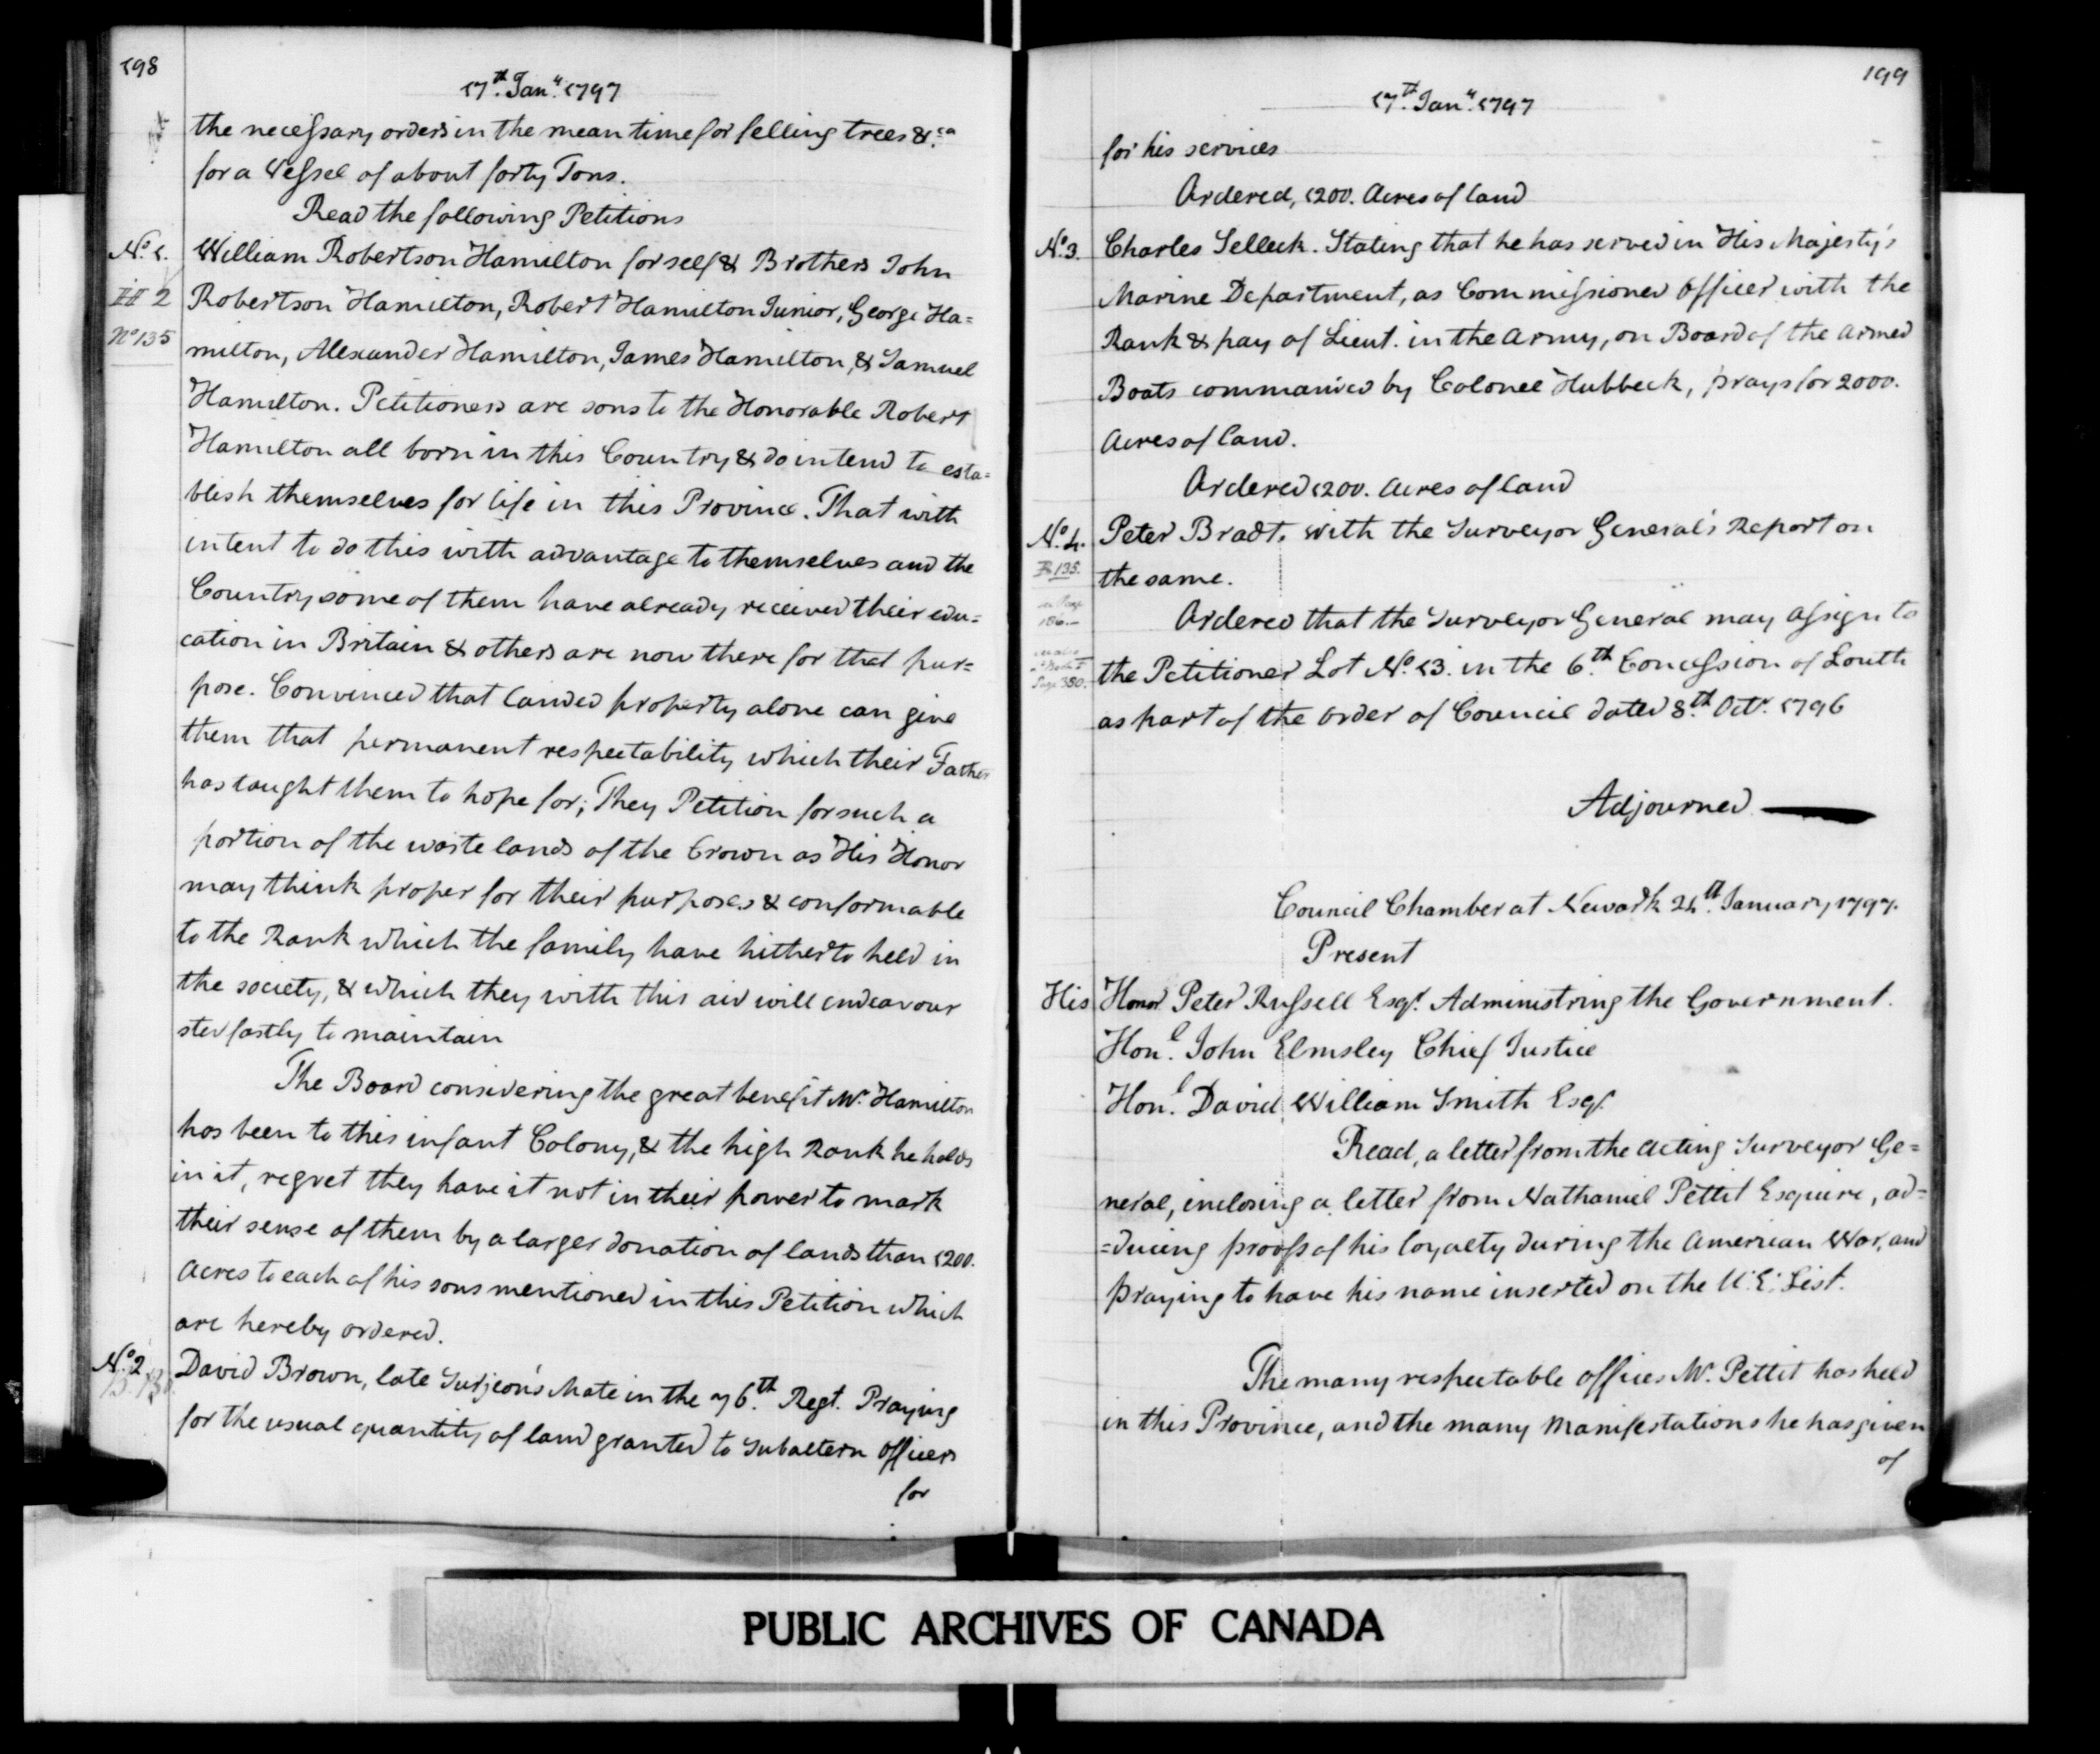 198
17th. Jany. 1797
the necessary orders in the mean time for felling trees &ca.
for a Vessel of about forty Tons.
Read the following Petitions
No. 1.
William Robertson Hamilton for self & Brothers John
Robertson Hamilton, Robert Hamilton Junior, George Ha=
No 135
milton, Alexander Hamilton, James Hamilton, & Samuel
Hamilton. Petitioners are sons to the Honorable Robert
Hamilton all born in this Country & do intend to esta=
blish themselves for life in this Province. That with
intent to do this with advantage to themselves and the
Country some of them have already received their edu=
cation in Britain & others are now there for that pur=
pose. Convinced that landed property alone can give
them that permanent respectability which their Father
has taught them to hope for; They Petition for such a
portion of the waste lands of the Crown as His Honor
may think proper for their purposes & conformable
to the Rank which the family have hitherto held in
the society, & which they with this aid will endeavour
stedfastly to maintain
The Board considering the great benefit Mr. Hamilton
has been to this infant Colony, & the high Rank he holds
in it, regret they have it not in their power to mark
their sense of them by a larger donation of lands than 1200.
Acres to each of his sons mentioned in this Petition which
are hereby ordered.
No. 2
David Brown, late Surjeon's Mate in the 76th. Regt. Praying
for the usual quantity of land granted to Subaltern Officers
for
199
17th. Jany. 1797
for his services
Ordered, 1200. Acres of land
No. 3.
Charles Selleck. Stating that he has served in His Majesty's
Marine Department, as Commissioned Officer with the
Rank & pay of Lieut. in the Army, on Board of the armed
Boats commanded by Colonel Hubbeck, prays for 2000.
Acres of land.
Ordered 1200. Acres of land
No. 4.
Peter Bradt. with the Surveyor General's Report on
B 135.
the same.
186.
Ordered that the Surveyor General may assign to
Page 380.
the Petitioner Lot No. 13. in the 6th. Concession of Louth
as part of the Order of Council dated 8th. Octr. 1796
Adjourned
Council Chamber at Newark 24th. January 1797.
Present
His Honor Peter Russell Esqr. Administring the Government.
Honl. John Elmsley Chief Justice
Honl. David William Smith Esqr.
Read, a letter from the Acting Surveyor Ge=
neral, inclosing a letter from Nathaniel Pettit Esquire, ad=
=ducing proofs of his loyalty during the American War, and
praying to have his name inserted on the U.E. List.
The many respectable offices Mr. Pettit has held
in this Province, and the many Manifestations he has given
of
PUBLIC ARCHIVES OF CANADA